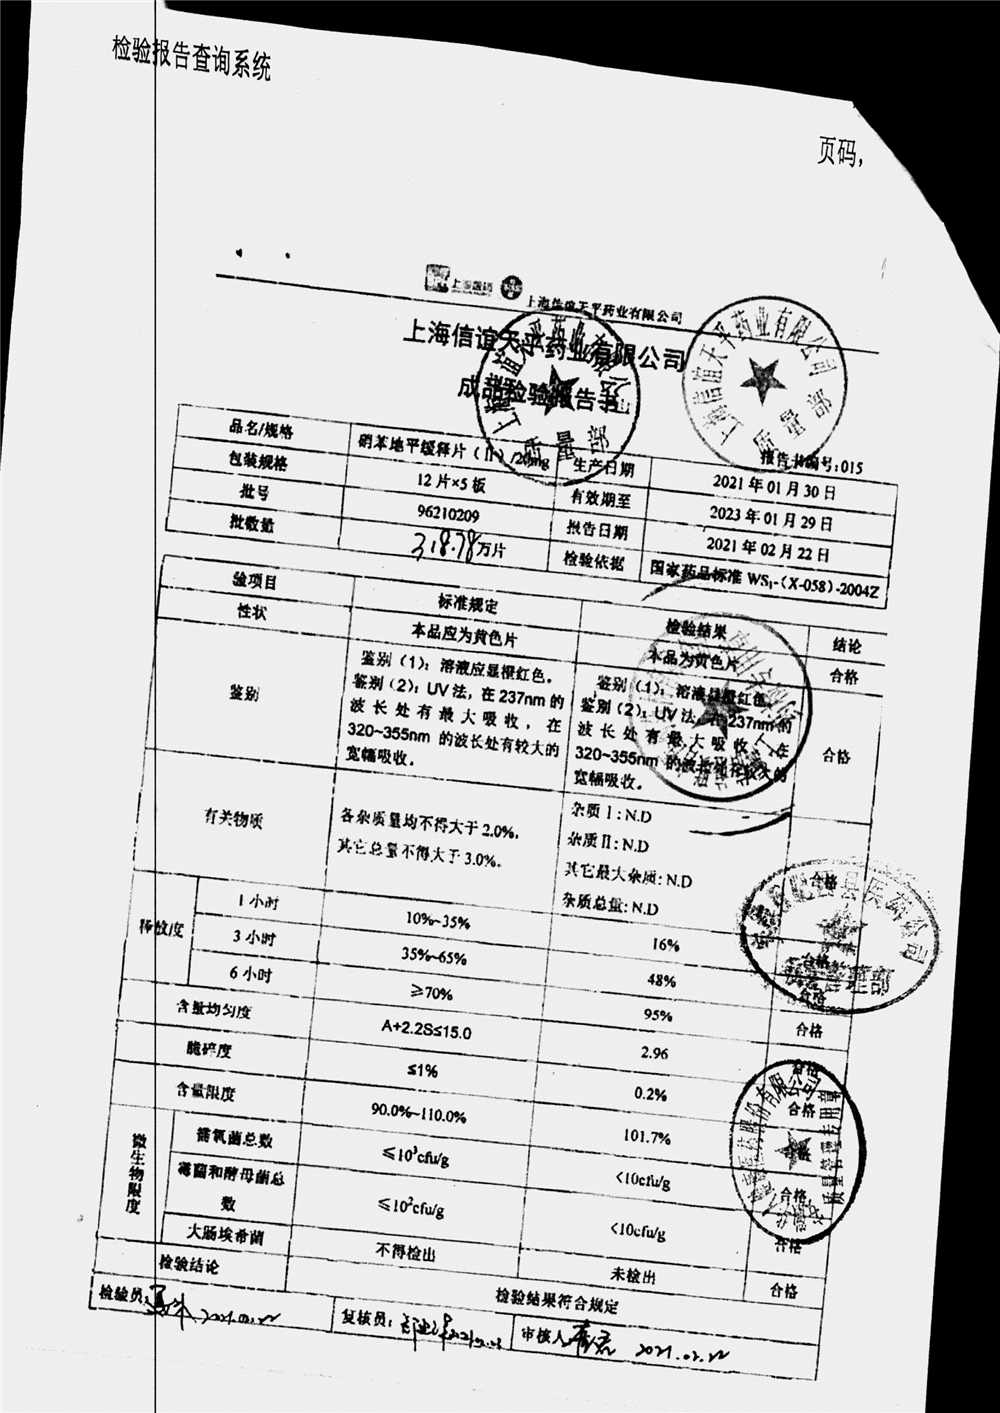 检验报告查询系统
页码,
上海信谊天平药业有限公司
上海信谊天平药业有限公司
成品检验报告书
报告书编号:015
品名/规格 硝苯地平缓释片(II)/20mg 生产日期 2021年01月30日
包装规格 12片×5板 有效期至 2023年01月29日
批号 96210209 报告日期 2021年02月22日
批数量 318.78万片 检验依据 国家药品标准 WS₁-(X-058)-2004Z
验项目 标准规定 检验结果 结论
性状 本品应为黄色片 本品为黄色片 合格
鉴别
鉴别(1):溶液应显橙红色。
鉴别(2):UV法,在237nm的
波长处有最大吸收,在
320~355nm 的波长处有较大的
宽幅吸收。
鉴别(1):溶液显橙红色。
鉴别(2):UV法,在237nm的
波长处有最大吸收,在
320~355nm 的波长处有较大的
宽幅吸收。
合格
有关物质
各杂质量均不得大于2.0%,
其它总量不得大于3.0%。
杂质I:N.D
杂质II:N.D
其它最大杂质:N.D
杂质总量:N.D
合格
释放度
1小时 10%~35% 16% 合格
3小时 35%~65% 48% 合格
6小时 ≥70% 95% 合格
含量均匀度 A+2.2S≤15.0 2.96 合格
脆碎度 ≤1% 0.2% 合格
含量限度 90.0%~110.0% 101.7% 合格
微生物限度
需氧菌总数 ≤10³cfu/g <10cfu/g 合格
霉菌和酵母菌总数 ≤10²cfu/g <10cfu/g 合格
大肠埃希菌 不得检出 未检出 合格
检验结论 检验结果符合规定
检验员: 2021.02.22 复核员: 2021.02.22 审核人: 2021.02.22
上海信谊天平药业有限公司
质量部
上海信谊天平药业有限公司
质量部
质量管理部
质量管理专用章